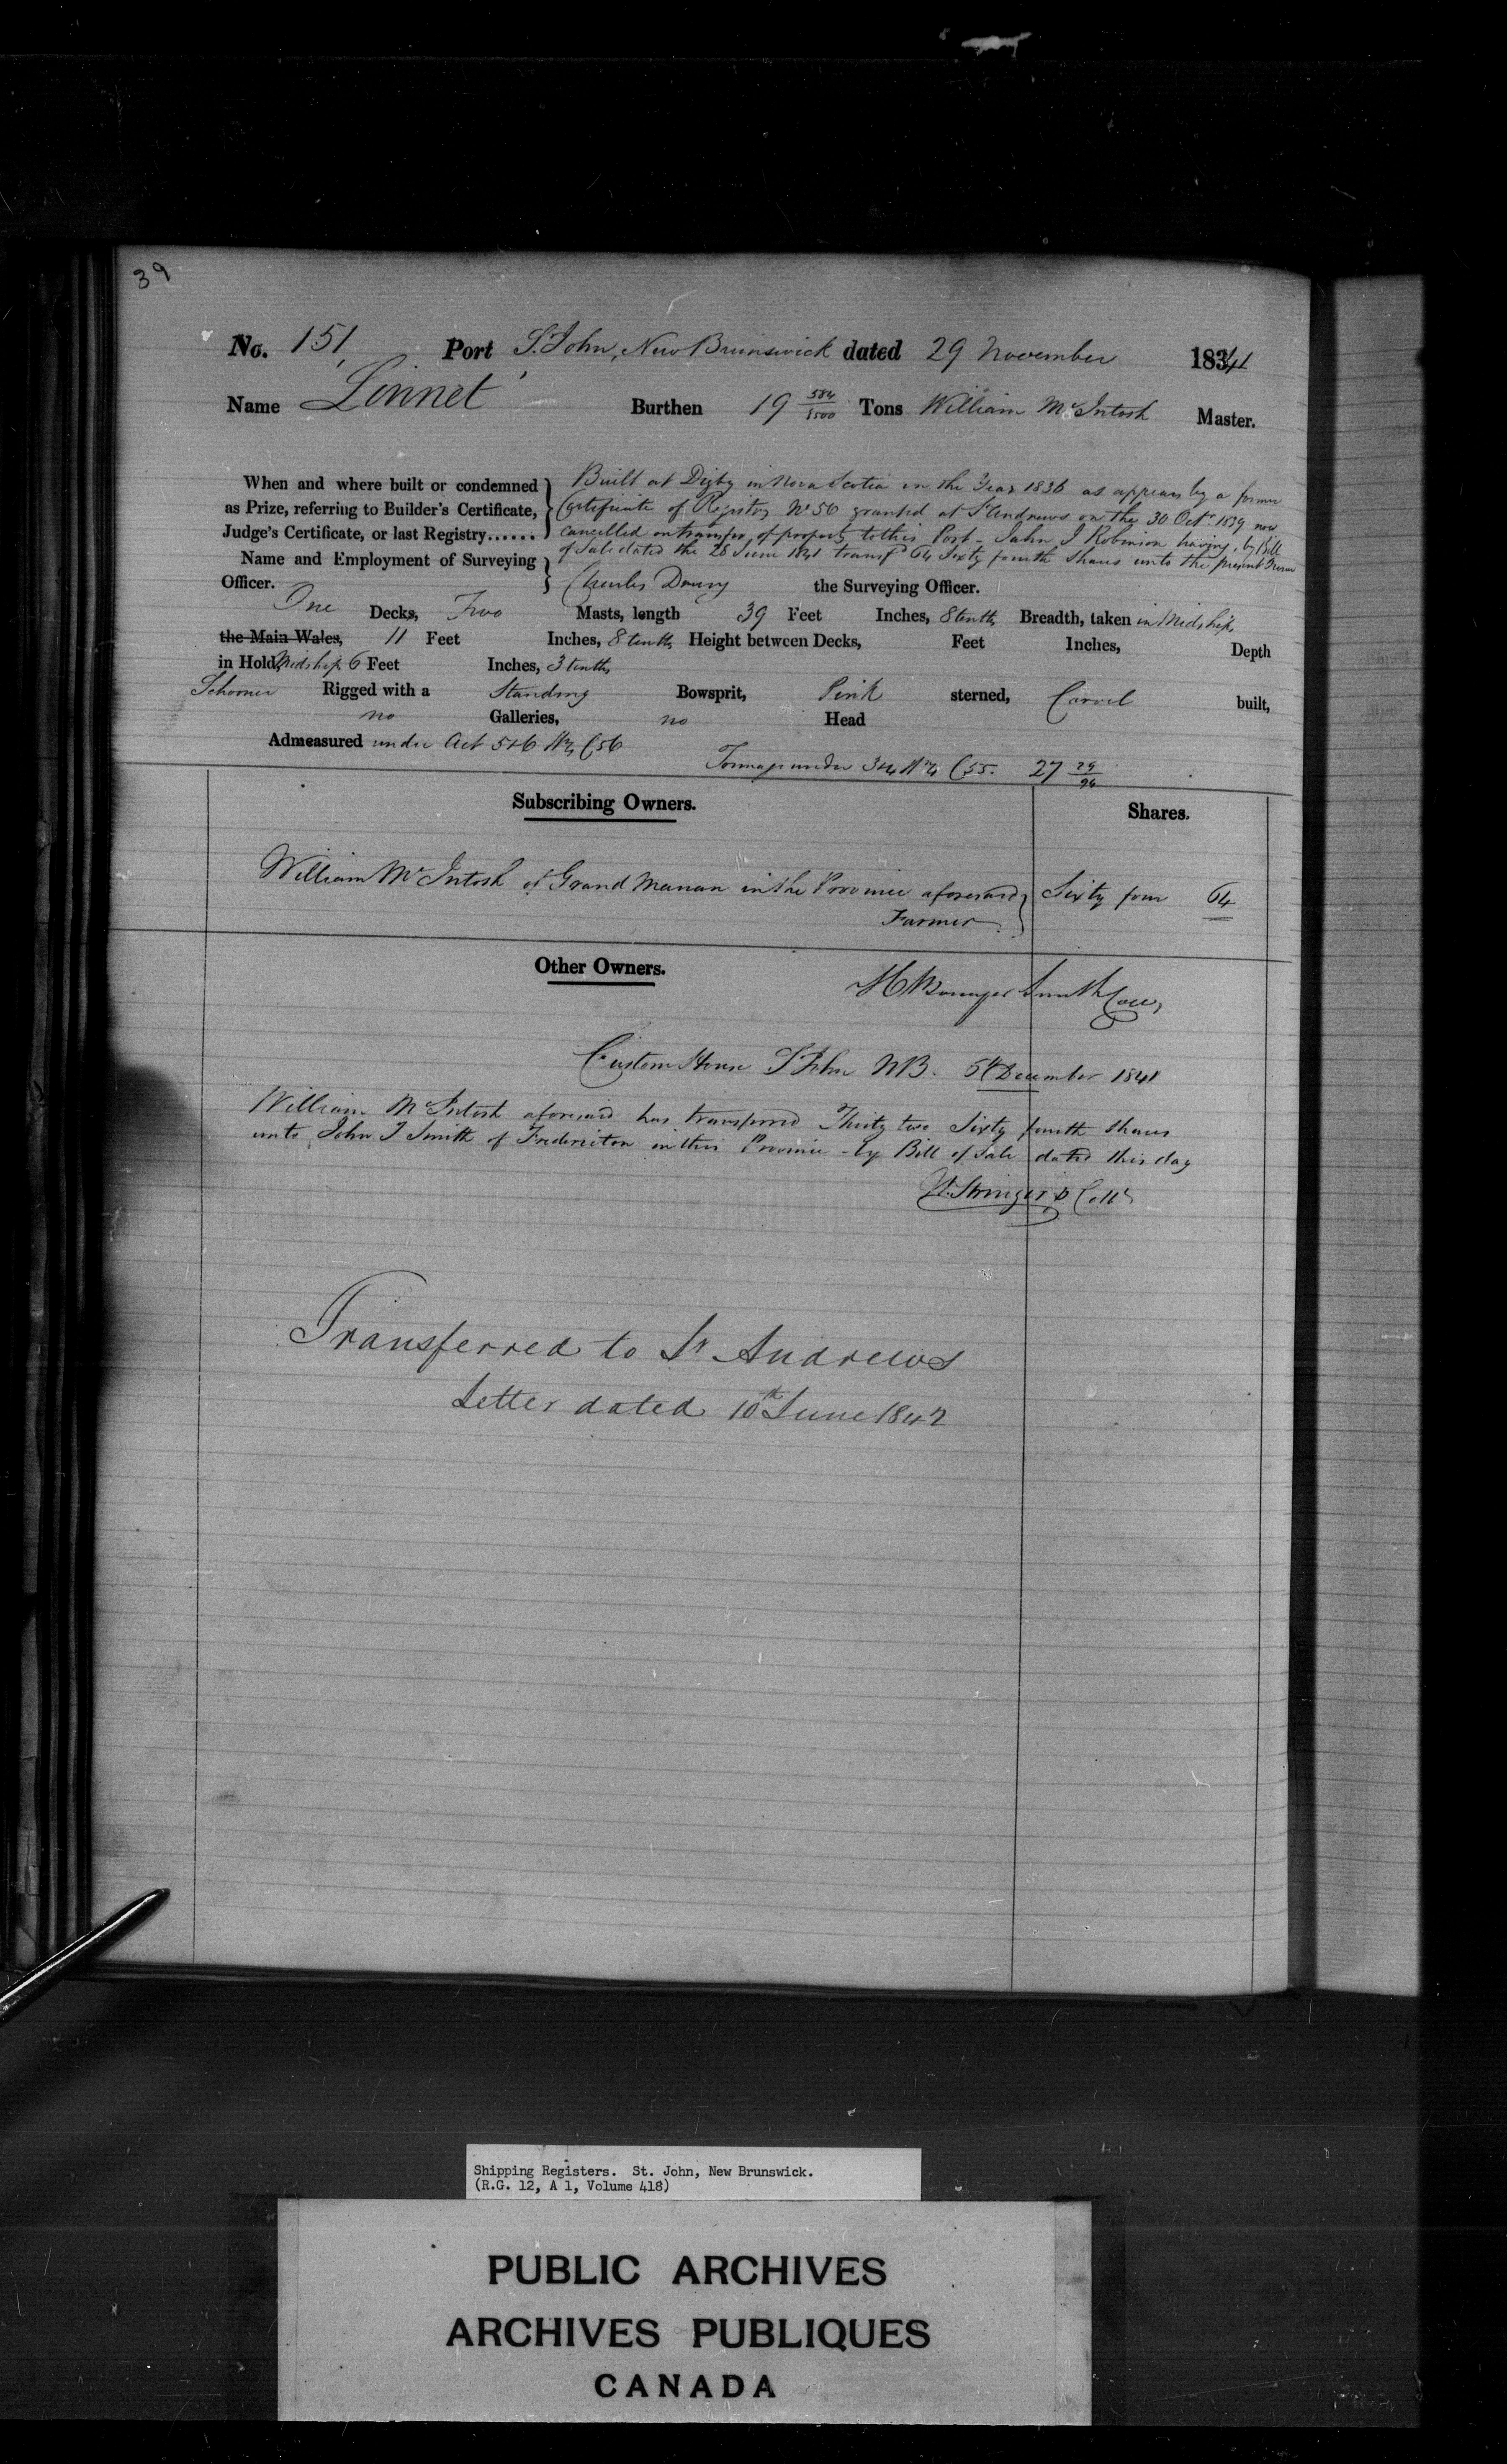 39
No. 151 Port St. John, New Brunswick dated 29 November 1841
Name Linnet Burthen 19 584/3500 Tons William McIntosh Master.
When and where built or condemned as Prize, referring to Builder's Certificate, Judge's Certificate, or last Registry......
Built at Digby in Nova Scotia in the Year 1836 as appears by a former
Certificate of Registry No 56 granted at St Andrews on the 30 Octr 1839 now
cancelled on transfer of property to this Port - John J Robinson having, by Bill
of Sale dated the 28 June 1841 transfd 64 Sixty fourth Shares unto the present Owner
Name and Employment of Surveying Officer.
Charles the Surveying Officer.
One Decks, Two Masts, length 39 Feet Inches, 8 tenths Breadth, taken in Midships
the Main Wales, 11 Feet Inches, 8 tenths Height between Decks, Feet Inches, Depth
in Hold Midships 6 Feet Inches, 3 tenths
Schooner Rigged with a Standing Bowsprit, Pink sterned, Carvel built,
no Galleries, no Head
Admeasured under Act 5&6 Wm 4 C 56
Tonnage under 3&4 Wm 4 C 55. 27 29/94
Subscribing Owners. Shares.
William McIntosh of Grand Manan in the Province aforesaid Sixty four 64
Farmer
Other Owners.
H Bowyer Smith Coll,
Custom House St John NB. 5th December 1841
William McIntosh aforesaid has transferred Thirty two Sixty fourth Shares
unto John T Smith of Fredericton in this Province - by Bill of Sale dated this day
Stringer D Collr
Transferred to St Andrews
Letter dated 10th June 1842
Shipping Registers. St. John, New Brunswick.
(R.G. 12, A 1, Volume 418)
PUBLIC ARCHIVES
ARCHIVES PUBLIQUES
CANADA